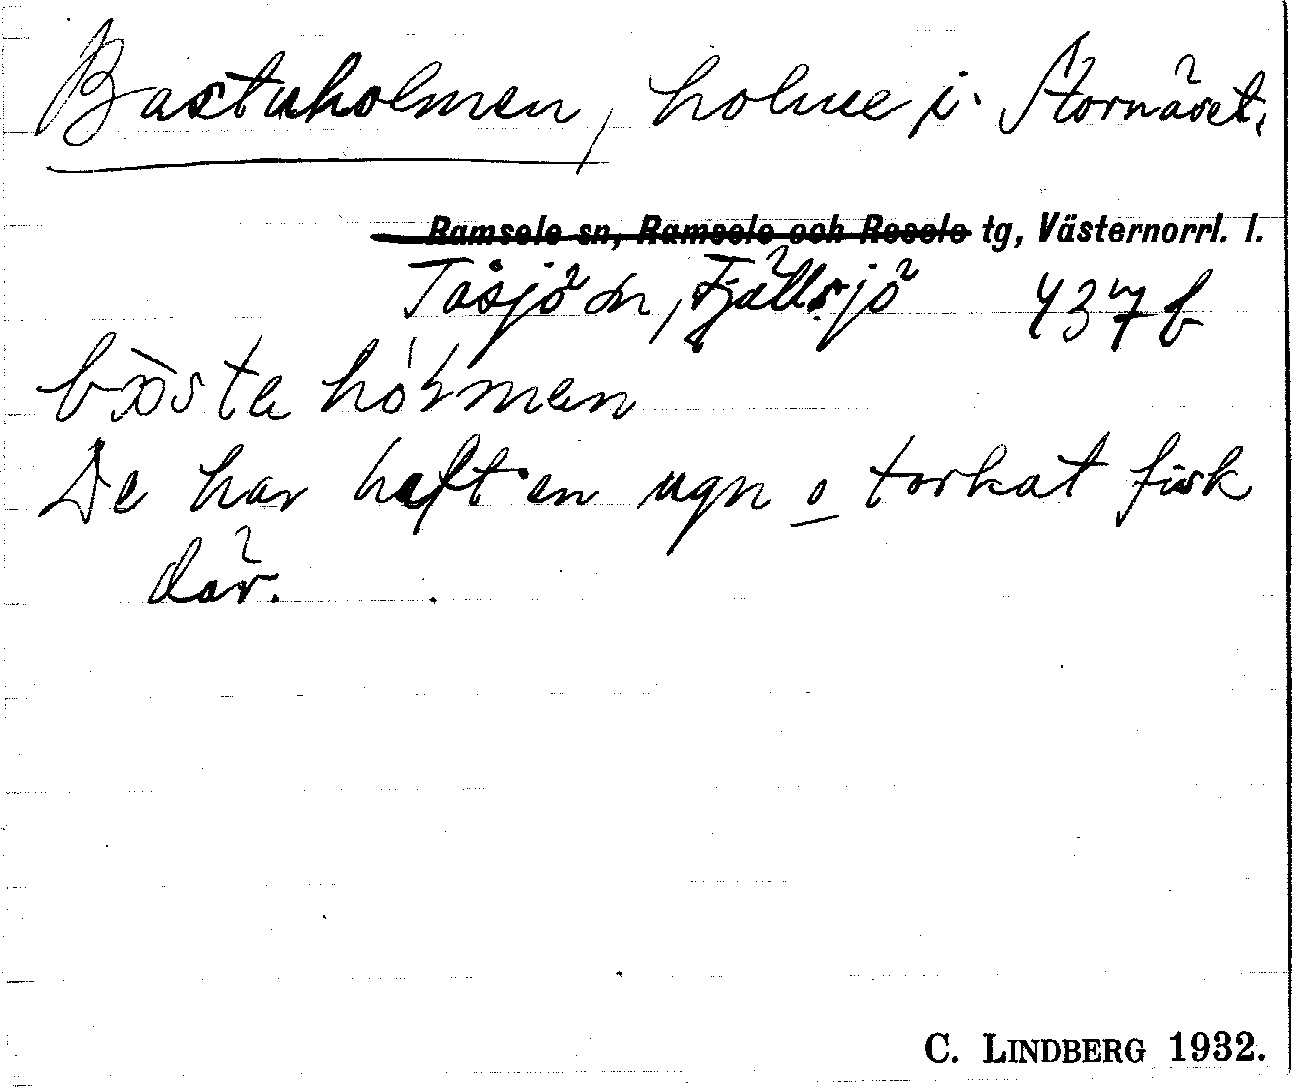 Bastuholmen, holme i Stornäset.
Ramsele sn, Ramsele och Resele tg, Västernorrl. l.
Tåsjö sn, Fjällsjö 437 b
De har haft en ugn o torkat fisk
där.
C. LINDBERG 1932.